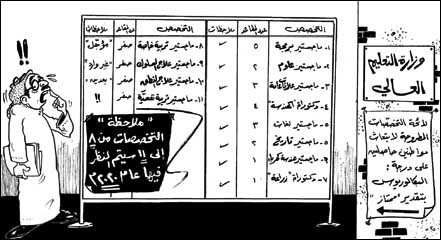 وزارة التعليم
العالي
لائحة التخصصات
المطروحة لابتعاث
مواطنين حاصلين
على درجة:
البكالوريوس
بتقدير "ممتاز"
التخصص
عدد المقاعد
ملاحظات
١- ماجستير برمجة ٥ ✓
٢- ماجستير علوم ٢ ✓
٣- ماجستير ٤ ✓
٤- دكتوراة الهندسة ٣ ✓
٥- ماجستير لغات ٣ ✓
٦- ماجستير تاريخ ٢ ✓
ماجستير هندسة ١ ✓
٧- دكتوراة "زراعة" ١ ✓
التخصص
عدد المقاعد
ملاحظات
٨- ماجستير تربية خاصة صفر "مؤجل"
٩- ماجستير علاج سلوك صفر "غير وارد"
١٠- ماجستير علاج نطق صفر "بعدين"
١١- ماجستير تربية صفر !!
"ملاحظة"
التخصصات من ٨
إلى ١١ سيتم النظر
فيها عام ٣٠٢٠م
!!